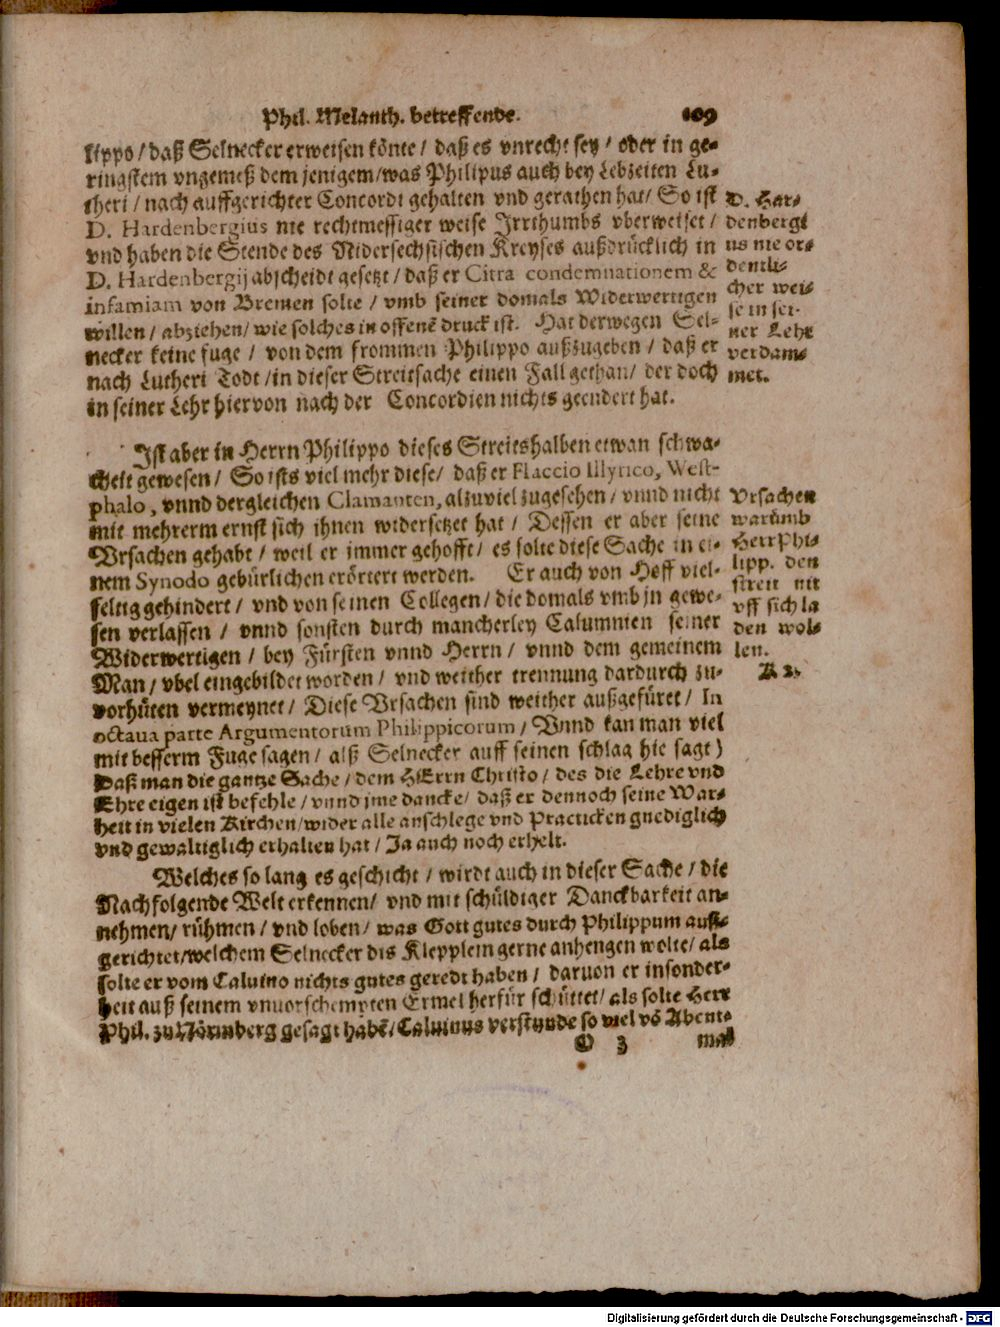 Phil. Melanth. betreffende. 109
lippo / daß Selnecker erweisen könte / daß es vnrecht sey / oder in ge-
ringstem vngemeß dem jenigem / was Philipus auch bey Lebzeiten Lu-
theri / nach auffgerichter Concordi gehalten vnd gerathen hat / So ist
D. Hardenbergius nie rechtmessiger weise Jrrthumbs vberweiset /
vnd haben die Stende des Nidersechsischen Kreyses außdrücklich in
D. Hardenbergij abscheidt gesetzt / daß er Citra condemnationem &
infamiam von Bremen solte / vmb seiner domals Widerwertigen
willen / abziehen / wie solches in offenē druck ist. Hat derwegen Sel-
necker keine fuge / von dem frommen Philippo außzugeben / daß er
nach Lutheri Todt / in dieser Streitsache einen Fall gethan / der doch
in seiner Lehr hiervon nach der Concordien nichts geendert hat.
D. Har-
denbergi
us nie or-
dentli-
cher wei-
se in sei-
ner Lehr
verdam-
met.
Jst aber in Herrn Philippo dieses Streits halben etwan schwa-
cheit gewesen / So ists viel mehr diese / daß er Flaccio Illyrico, West-
phalo, vnnd dergleichen Clamanten, alzuviel zugesehen / vnnd nicht
mit mehrerm ernst sich ihnen widersetzet hat / Dessen er aber seine
Vrsachen gehabt / weil er immer gehofft / es solte diese Sache in ei-
nem Synodo gebürlichen erörtert werden. Er auch von Hoff viel-
feltig gehindert / vnd von seinen Collegen / die domals vmb jn gewe-
sen verlassen / vnnd sonsten durch mancherley Calumnien seiner
Widerwertigen / bey Fürsten vnnd Herrn / vnnd dem gemeinem
Man / vbel eingebildet worden / vnd weither trennung dardurch zu-
vorhüten vermeynet / Diese Vrsachen sind weither außgefüret / In
octaua parte Argumentorum Philippicorum / Vnnd kan man viel
mit besserm Fuge sagen / alß Selnecker auff seinen schlag hie sagt)
Daß man die gantze Sache / dem HErrn Christo / des die Lehre vnd
Ehre eigen ist befehle / vnnd jme dancke / daß er dennoch seine War-
heit in vielen Kirchen / wider alle anschlege vnd Practicken gnediglich
vnd gewaltiglich erhalten hat / Ja auch noch erhelt.
Vrsachen
warumb
Herr Phi-
lipp. den
streit nit
vff sich la
den wol-
len.
K 2.
Welches so lang es geschicht / wirdt auch in dieser Sache / die
Nachfolgende Welt erkennen / vnd mit schüldiger Danckbarkeit an-
nehmen / rühmen / vnd loben / was Gott gutes durch Philippum auß-
gerichtet / welchem Selnecker dis Klepplein gerne anhengen wolte / als
solte er vom Caluino nichts gutes geredt haben / daruon er insonder-
heit auß seinem vnuorschempten Ermel herfür schüttet / als solte Herr
Phil. zu Nörmberg gesagt habē / Caluinus verstünde so viel vō Abent-
O 3 mal
Digitalisierung gefördert durch die Deutsche Forschungsgemeinschaft - DFG